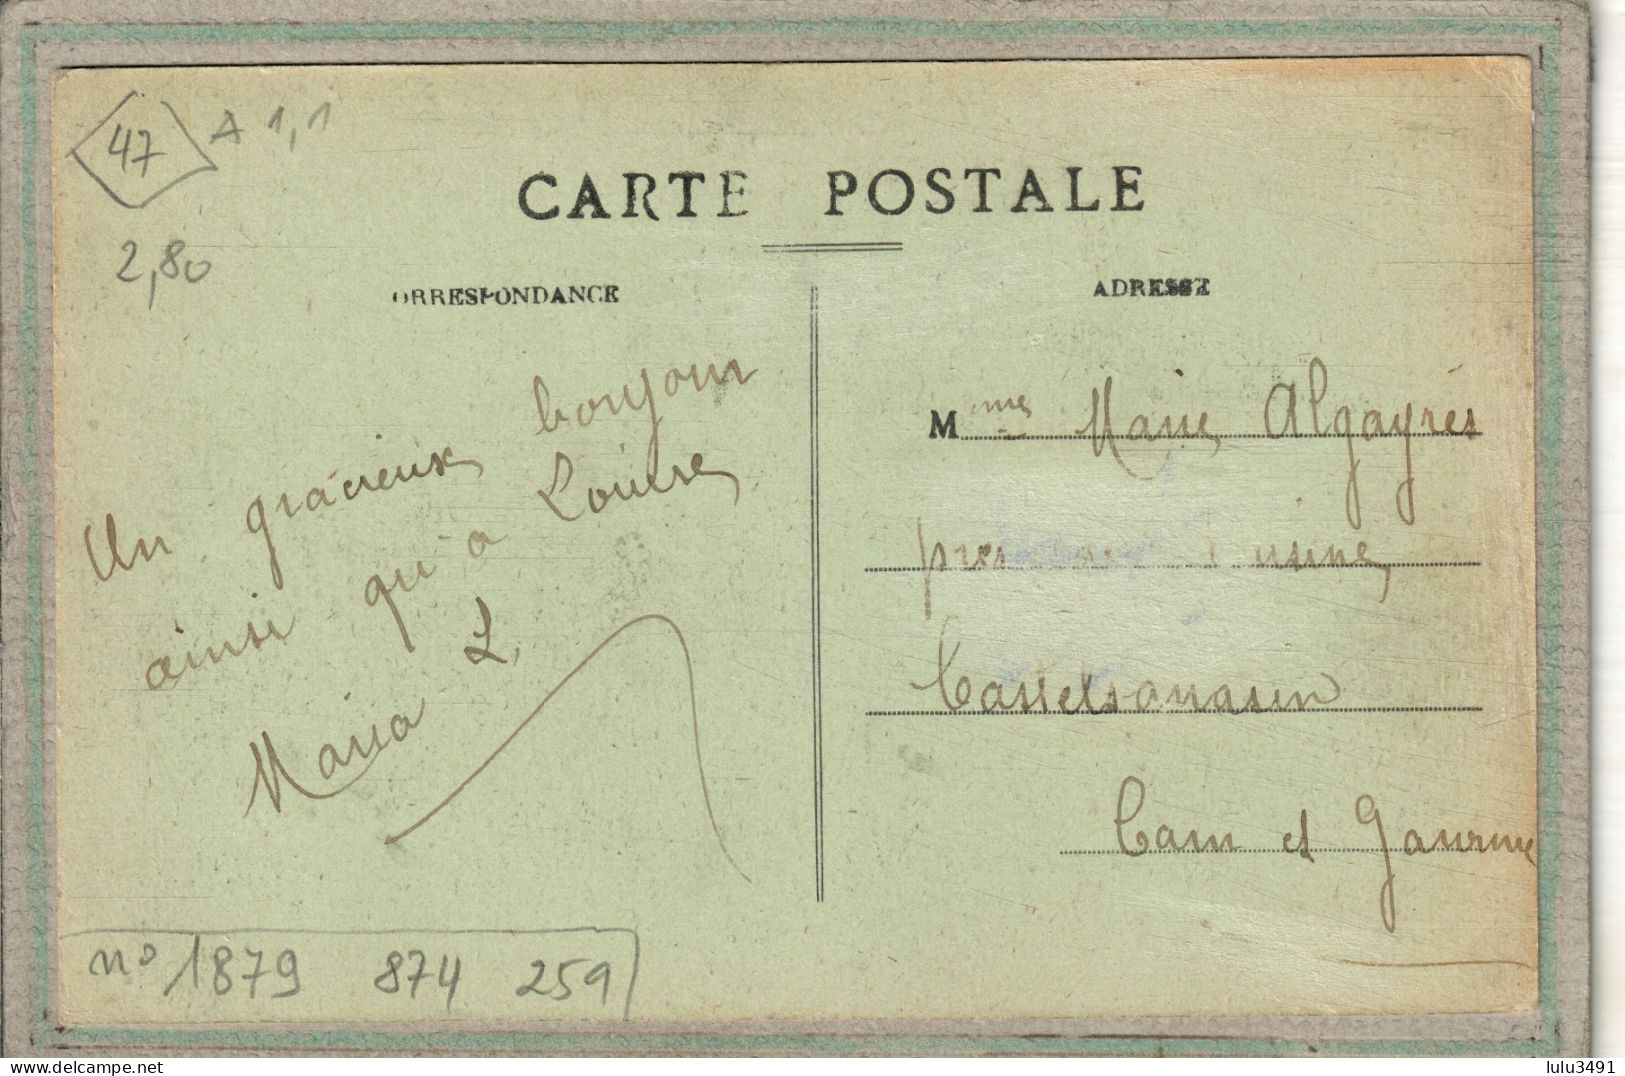 47 A 1,1
2,80
CARTE POSTALE
ORRESPONDANCE
ADRESSE
Un gracieux bonjour
ainsi qu'à Louise
Maria L.
Mme Marie Algayrès
près usine
Castelsarrasin
Tarn et Garonne
n° 1879 874 259
delcampe.net
lulu3491